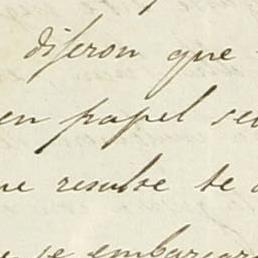 diseron que
en papel se
ue resulse te
se embarcar